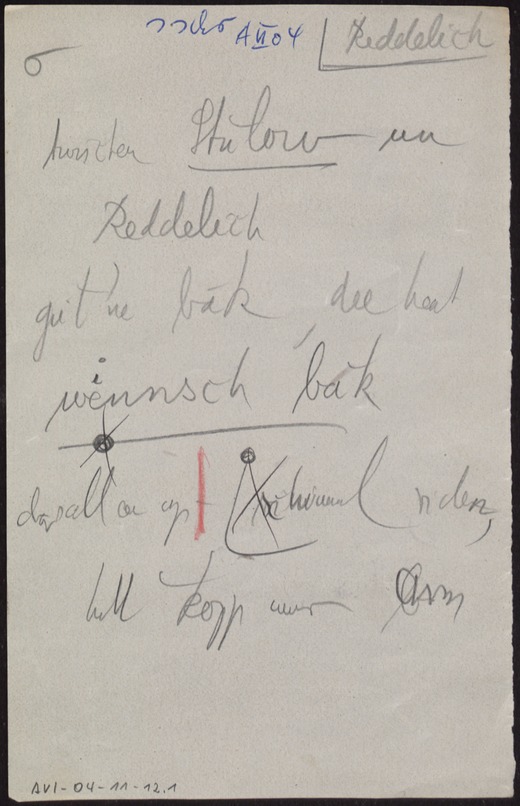 A VI 04 Reddelich
twischen Stülow un
Reddelich
gift 'ne bäk, dee heet
wennsch bäk
dor sall een up'n Schimmel riden,
hett Kopp unner Arm
AVI-04-11-12.1